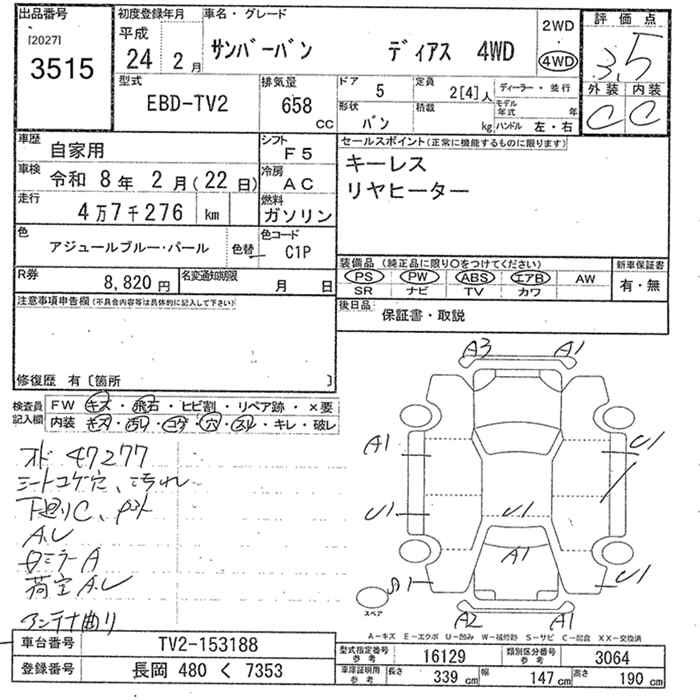 出品番号
[2027]
3515
初度登録年月
平成
24 2月
車名・グレード
サンバーバン ディアス 4WD
2WD
4WD
評価点
3.5
外装 内装
C C
型式
EBD-TV2
排気量
658
cc
ドア
5
定員
2[4]人
ディーラー・並行
形状
バン
積載
kg
モデル年式 年
ハンドル 左・右
車歴
自家用
シフト
F5
セールスポイント(正常に機能するものに限ります)
キーレス
リヤヒーター
車検
令和 8年 2月(22日)
冷房
AC
走行
4万7千276 km
燃料
ガソリン
色
アジュールブルー・パール
色替
色コード
C1P
装備品(純正品に限り○をつけてください)
PS PW ABS エアB AW
SR ナビ TV カワ
新車保証書
有・無
R券
8,820円
名変通知期限
月 日
後日品
保証書・取説
注意事項申告欄(不具合内容等は具体的に記入して下さい)
修復歴 有〔箇所 〕
検査員記入欄
FW キズ・飛石・ヒビ割・リペア跡・×要
内装 キズ・汚レ・コゲ・穴・スレ・キレ・破レ
オド 47277
シートコゲ穴、汚れ
下廻りC
A.U
ロミラーA
荷室A.U
アンテナ曲り
A3 A1
A1 U1
U1 U1
A1
U1
スペア
A2 A1
A-キズ E-エクボ U-凹み W-補修跡 S-サビ C-腐食 XX-交換済
車台番号
TV2-153188
登録番号
長岡 480 く 7353
型式指定番号
参考
16129
類別区分番号
参考
3064
車庫証明用
参考
長さ
339 cm
幅
147 cm
高さ
190 cm